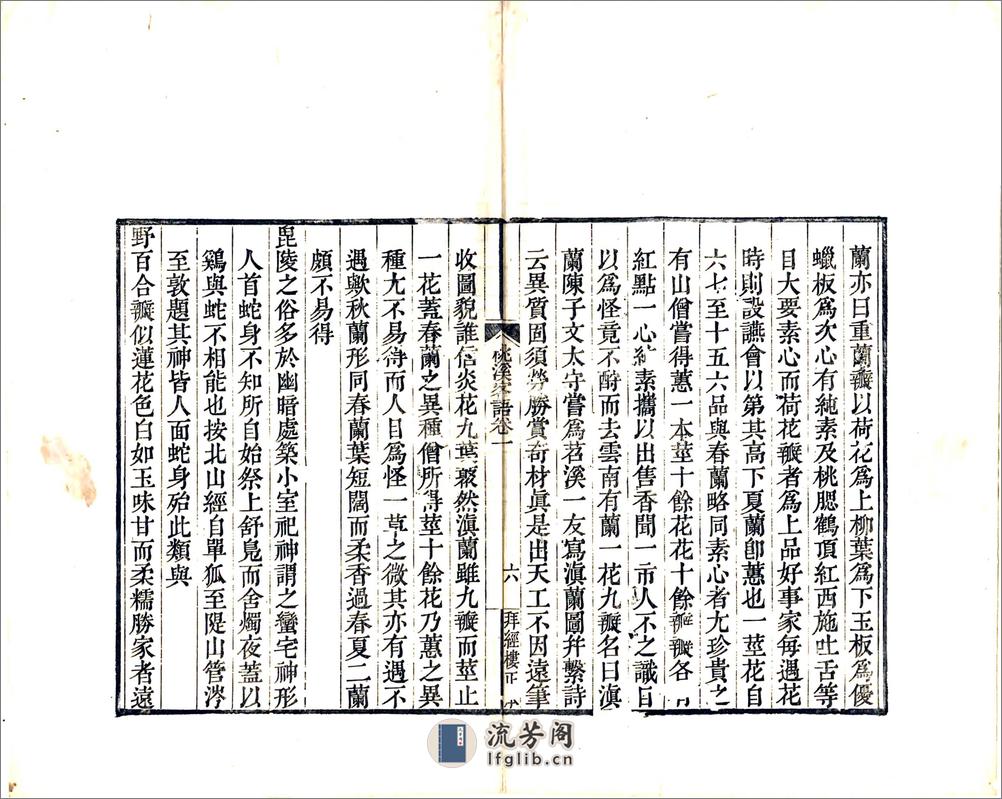 蘭亦曰重蘭瓣以荷花爲上柳葉爲下玉板爲優
蠟板爲次心有純素及桃腮鶴頂紅西施吐舌等
目大要素心而荷花瓣者爲上品好事家每遇花
時則設讌會以第其高下夏蘭卽蕙也一莖花自
六七至十五六品與春蘭略同素心者尤珍貴
有山僧嘗得蕙一本莖十餘花花十餘瓣瓣各
紅點一心純素攜以出售香聞一市人不之識目
以爲怪竟不酧而去雲南有蘭一花九瓣名曰滇
蘭陳子文太守嘗爲苕溪一友寫滇蘭圖幷繫詩
云異質固須勞勝賞奇材眞是出天工不因遠筆
收圖貌誰信炎花九葉叢然滇蘭雖九瓣而莖止
一花蓋春蘭之異種僧所得莖十餘花乃蕙之異
種尤不易得而人目爲怪一草之微其亦有遇不
遇歟秋蘭形同春蘭葉短闊而柔香過春夏二蘭
頗不易得
毘陵之俗多於幽暗處築小室祀神謂之蠻宅神形
人首蛇身不知所自始祭上舒鳧而舍燭夜蓋以
鷄與蛇不相能也按北山經自單狐至隄山管涔
至敦題其神皆人面蛇身殆此類與
野百合瓣似蓮花色白如玉味甘而柔糯勝家者遠
桃溪客語卷一
六
拜經樓正
流芳阁
lfglib.cn